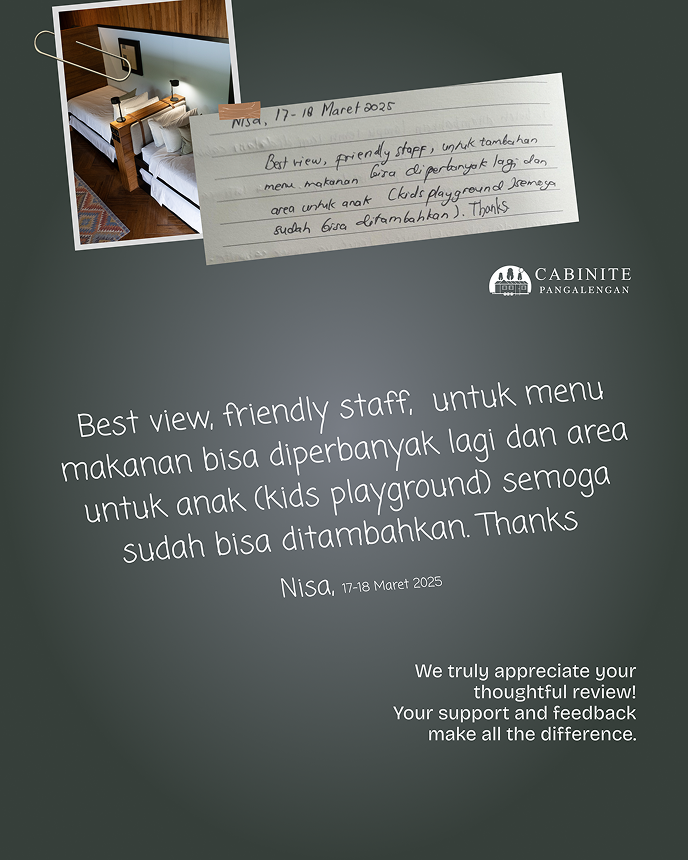 Nisa, 17-18 Maret 2025
Best view, friendly staff, untuk tambahan
menu makanan bisa diperbanyak lagi dan
area untuk anak (kids playground) semoga
sudah bisa ditambahkan). Thanks
CABINITE
PANGALENGAN
Best view, friendly staff, untuk menu
makanan bisa diperbanyak lagi dan area
untuk anak (kids playground) semoga
sudah bisa ditambahkan. Thanks
Nisa, 17-18 Maret 2025
We truly appreciate your
thoughtful review!
Your support and feedback
make all the difference.